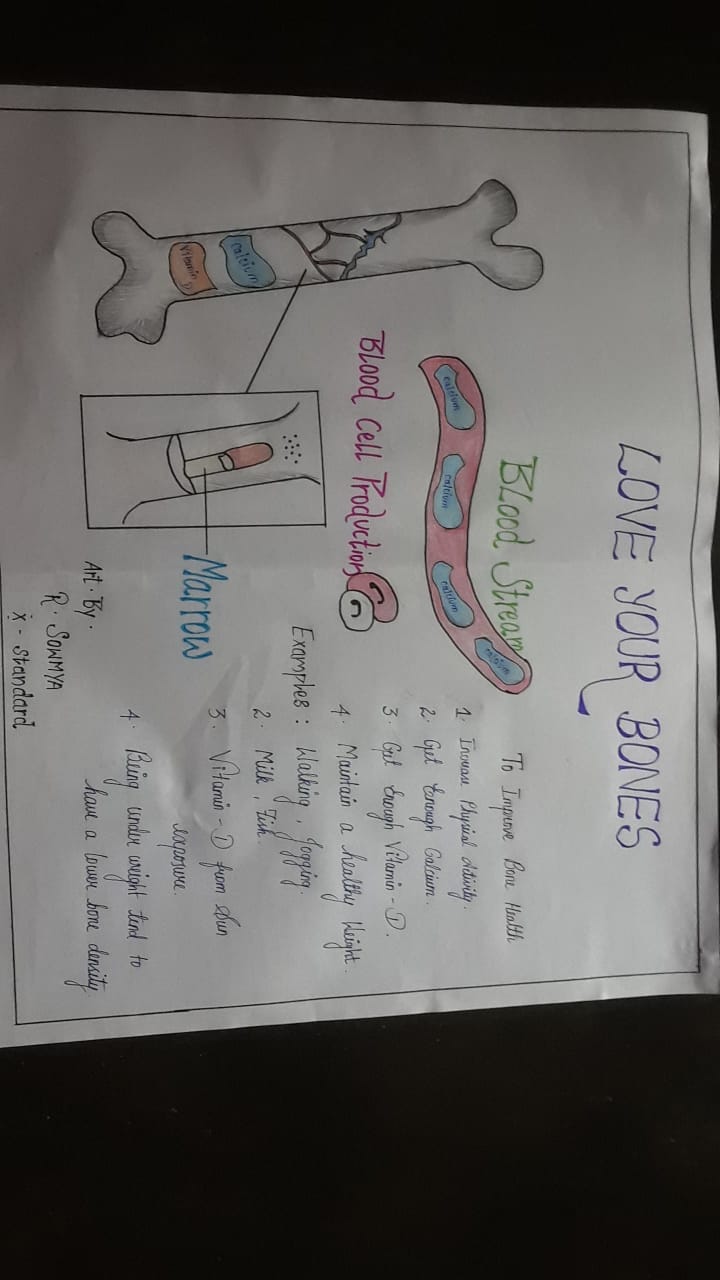 LOVE YOUR BONES
BLood Stream
calcium
calcium
calcium
calcium
Blood Cell Production
calcium
Vitamin D
Marrow
To Improve Bone Health
1. Increase Physical Activity.
2. Get Enough Calcium.
3. Get Enough Vitamin-D.
4. Maintain a healthy Weight.
Examples: Walking, Jogging.
2. Milk, Fish.
3. Vitamin-D from Sun
exposure.
4. Being under weight tend to
have a lower bone density.
Art. By.
R. SOWMYA
X - Standard